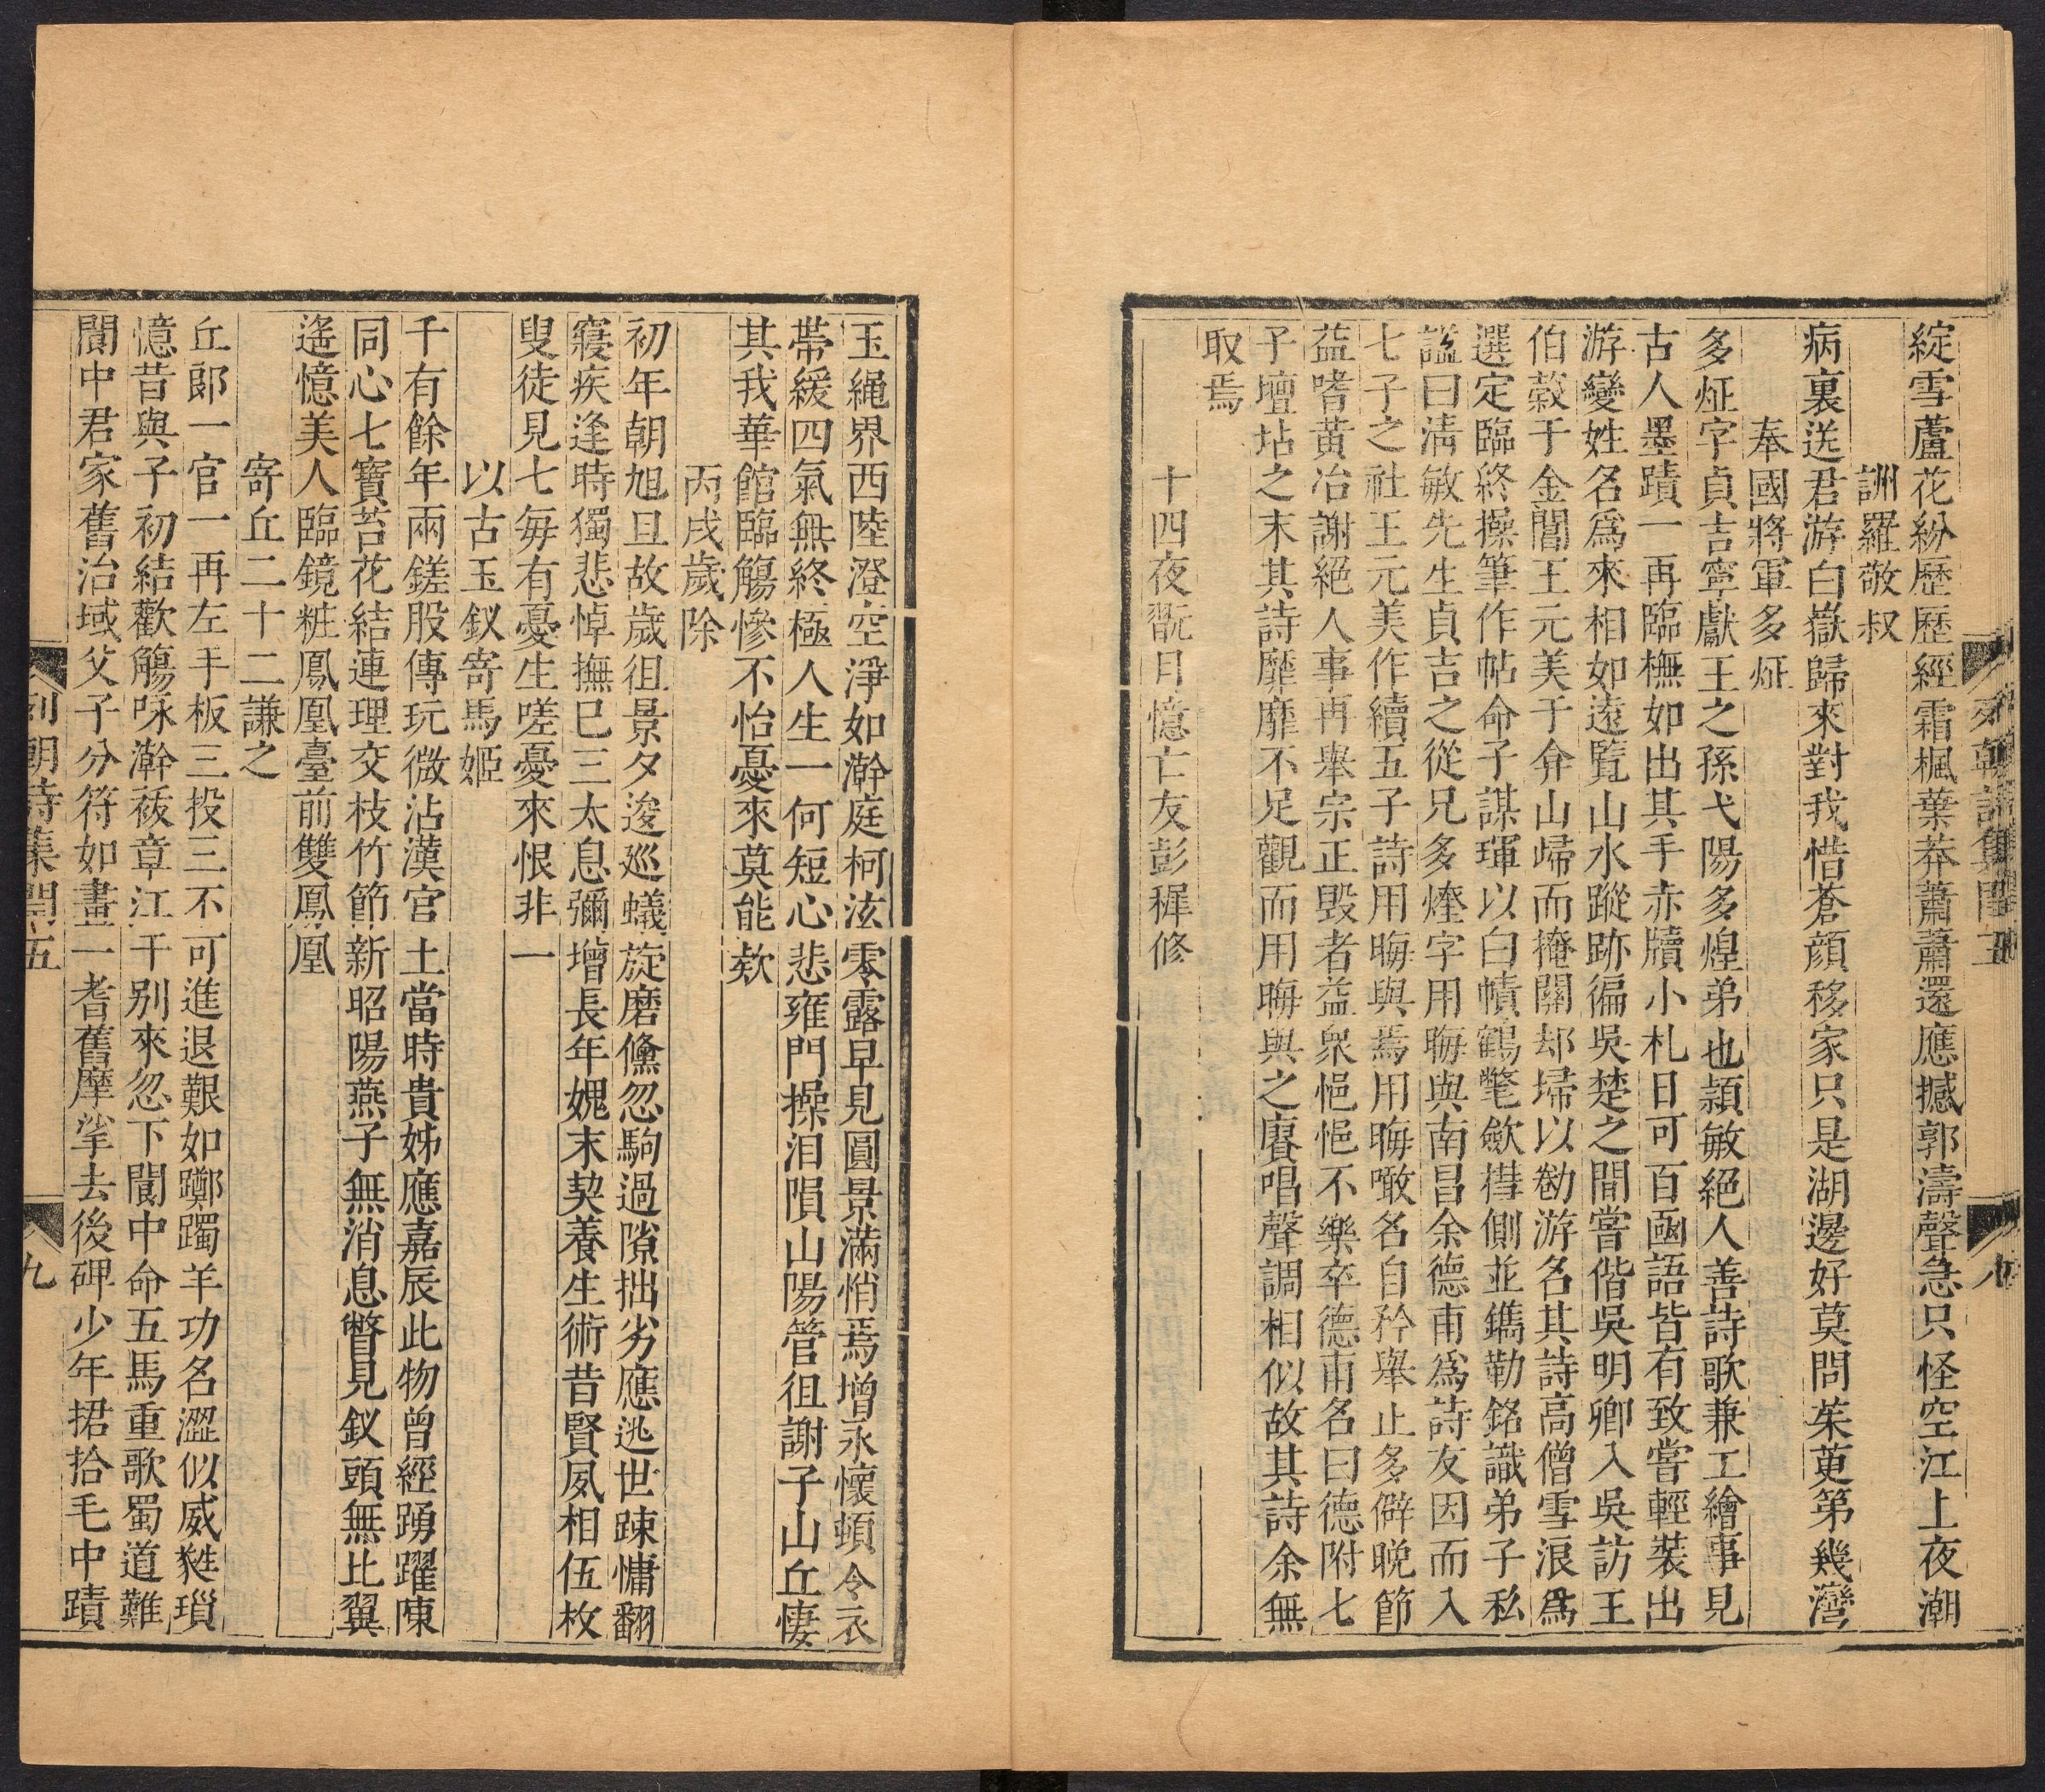 綻雪蘆花紛歷歷經霜楓葉莽蕭蕭還應撼郭濤聲急只怪空江上夜潮
詶羅敬叔
病裏送君游白嶽歸來對我惜蒼顔移家只是湖邊好莫問茱萸第幾灣
奉國將軍多炡
多炡字貞吉寧獻王之孫弋陽多煌弟也頴敏絕人善詩歌兼工繪事見
古人墨蹟一再臨橅如出其手赤牘小札日可百凾語皆有致嘗輕裝出
游變姓名爲來相如遠覽山水蹤跡徧吳楚之間嘗偕吳明卿入吳訪王
伯榖于金閶王元美于弇山歸而掩關却埽以勌游名其詩高僧雪浪爲
選定臨終操筆作帖命子謀㻔以白幘鶴氅歛㩉側並鐫勒銘識弟子私
謚曰淸敏先生貞吉之從兄多煃字用晦與南昌余德甫爲詩友因而入
七子之社王元美作續五子詩用晦與焉用晦噉名自矜舉止多僻晩節
益嗜黃冶謝絕人事再舉宗正毁者益衆悒悒不樂卒德甫名曰德附七
子壇坫之末其詩靡靡不足觀而用晦與之賡唱聲調相似故其詩余無
取焉
十四夜翫月憶亡友彭穉修
玉繩界西陸澄空淨如澣庭柯泫零露早見圓景滿悄焉增永懷頓令衣
帶緩四氣無終極人生一何短心悲雍門操泪隕山陽管徂謝子山丘悽
其我華館臨觴慘不怡憂來莫能欵
丙戌歲除
初年朝旭旦故歲徂景夕逡巡蟻旋磨儵忽駒過隙拙劣應逃世踈慵翻
寢疾逢時獨悲悼撫已三太息彌增長年媿末契養生術昔賢夙相伍枚
叟徒見七每有憂生嗟憂來恨非一
以古玉釵寄馬姬
千有餘年兩鎈股傳玩微沾漢宮土當時貴姊應嘉辰此物曾經踴躍陳
同心七寶苔花結連理交枝竹節新昭陽燕子無消息瞥見釵頭無比翼
遙憶美人臨鏡粧鳳凰臺前雙鳳凰
寄丘二十二謙之
丘郞一官一再左手板三投三不可進退艱如躑躅羊功名澀似威甤瑣
憶昔與子初結歡觴咏澣祓章江干别來忽下閬中命五馬重歌蜀道難
閬中君家舊治域父子分符如畫一耆舊摩挲去後碑少年捃拾毛中蹟
列朝詩集閏五
九